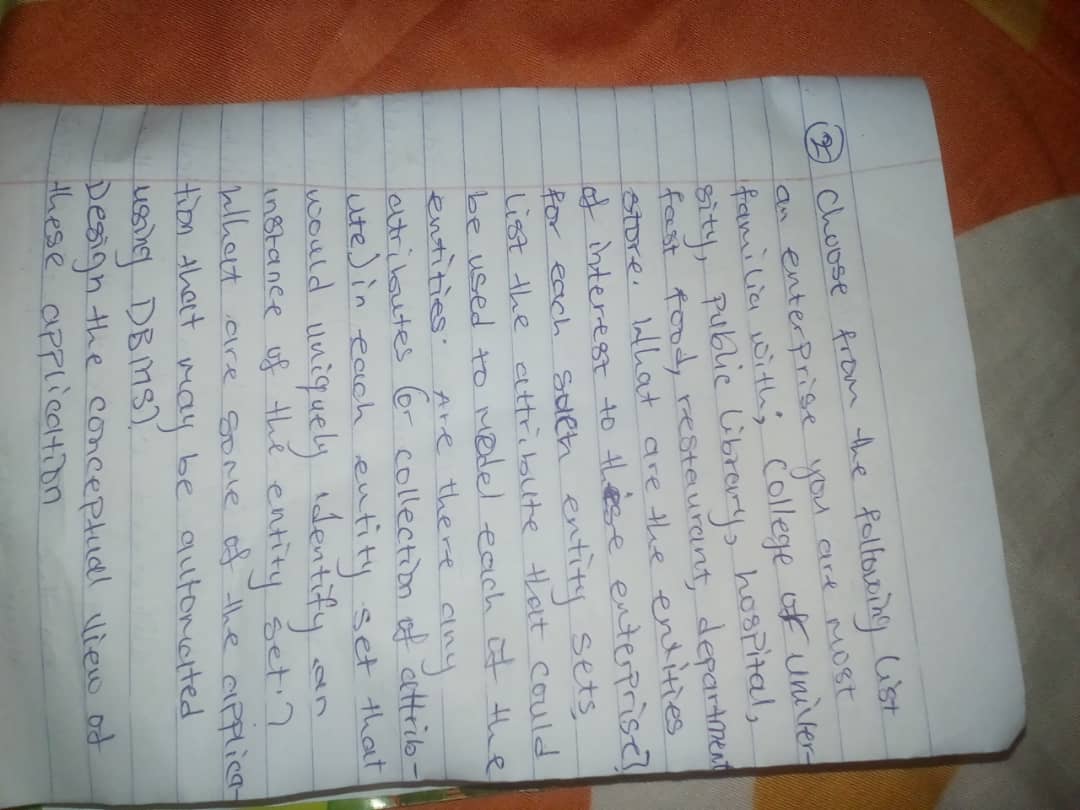 (2) Choose from the following list
an enterprise you are most
familia with; College of Univer-
sity, public library, hospital,
fast food, restaurant, department
store. What are the entities
of interest to these enterprise?
for each such entity sets,
list the attribute that could
be used to model each of the
entities. Are there any
attributes (or collection of attrib-
ute) in each entity set that
would uniquely identify an
instance of the entity set?
What are some of the applica-
tion that may be automated
using DBMS?
Design the conceptual view of
these application